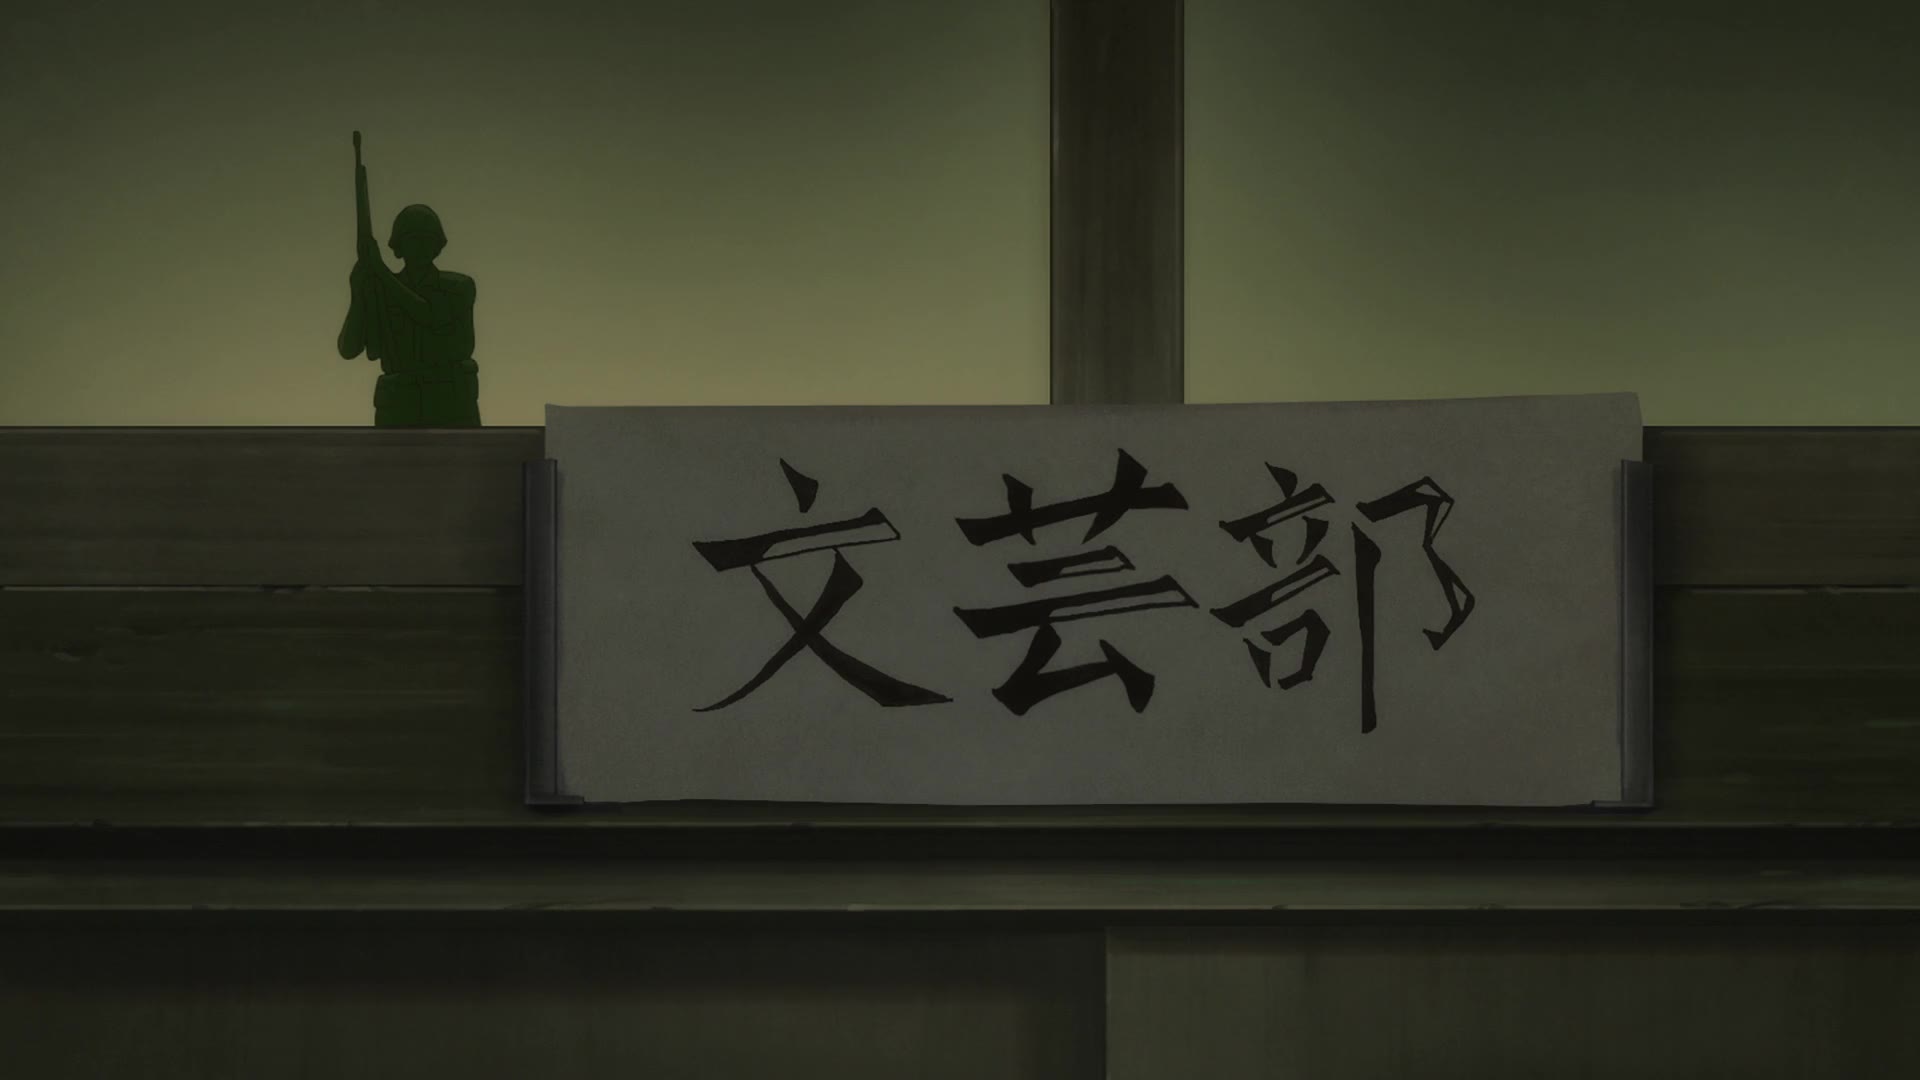 文芸部